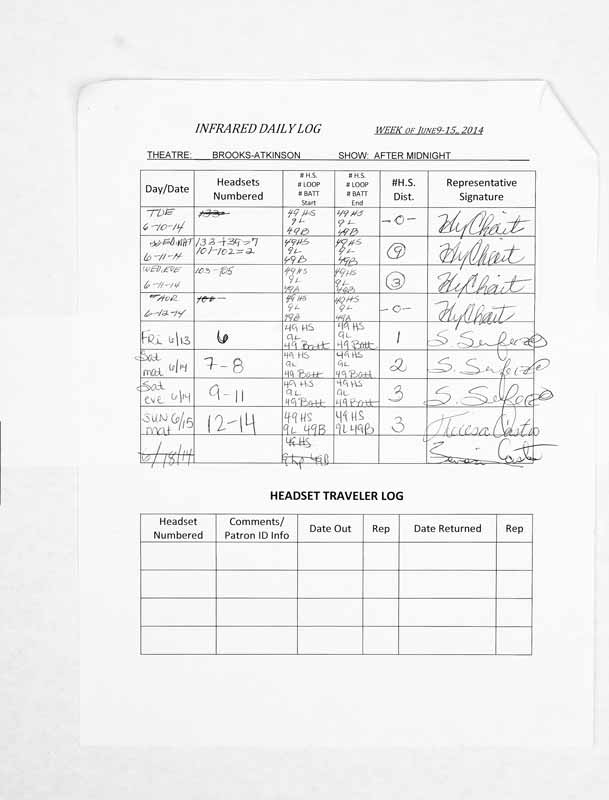 INFRARED DAILY LOG WEEK OF JUNE9-15, 2014
THEATRE: BROOKS-ATKINSON SHOW: AFTER MIDNIGHT
Day/Date
Headsets Numbered
# H.S. # LOOP # BATT Start
# H.S. # LOOP # BATT End
#H.S. Dist.
Representative Signature
TUE 6-10-14 49 HS 9L 49B 49 HS 9L 49B -0-
WED MAT 6-11-14 133+39=7 101-102=2 49HS 9L 49B 49HS 9L 49B 9
WED, EVE 6-11-14 103-105 49HS 9L 49B 49HS 9L 49B 3
6-12-14 49HS 9L 49HS 9L -0-
FRi 6/13 6 49 HS 9L 49 Batt 49 HS 9L 49 Batt 1
Sat mat 6/14 7-8 49 HS 9L 49 Batt 49 HS 9L 49 Batt 2
Sat eve 6/14 9-11 49 HS 9L 49 Batt 49 HS 9L 49 Batt 3
SUN 6/15 mat 12-14 49 HS 9L 49B 49 HS 9L 49B 3 Theresa Castro
HEADSET TRAVELER LOG
Headset Numbered
Comments/ Patron ID Info
Date Out
Rep
Date Returned
Rep